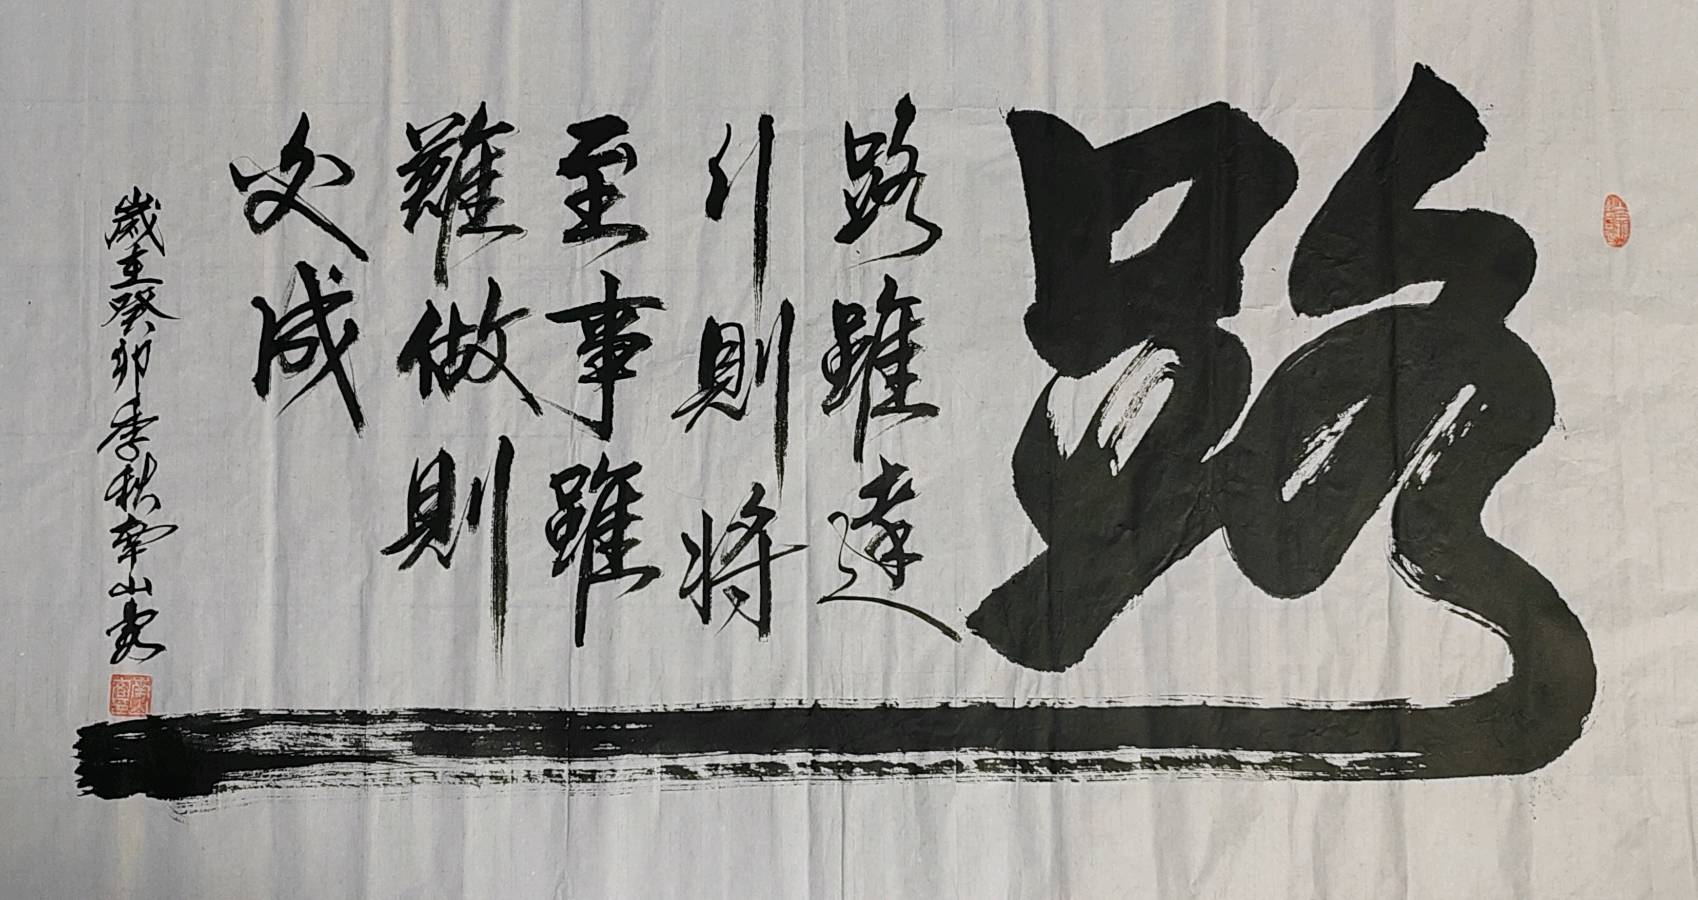 路
路雖遠
行則將
至事雖
難做則
必成
歲在癸卯季秋山